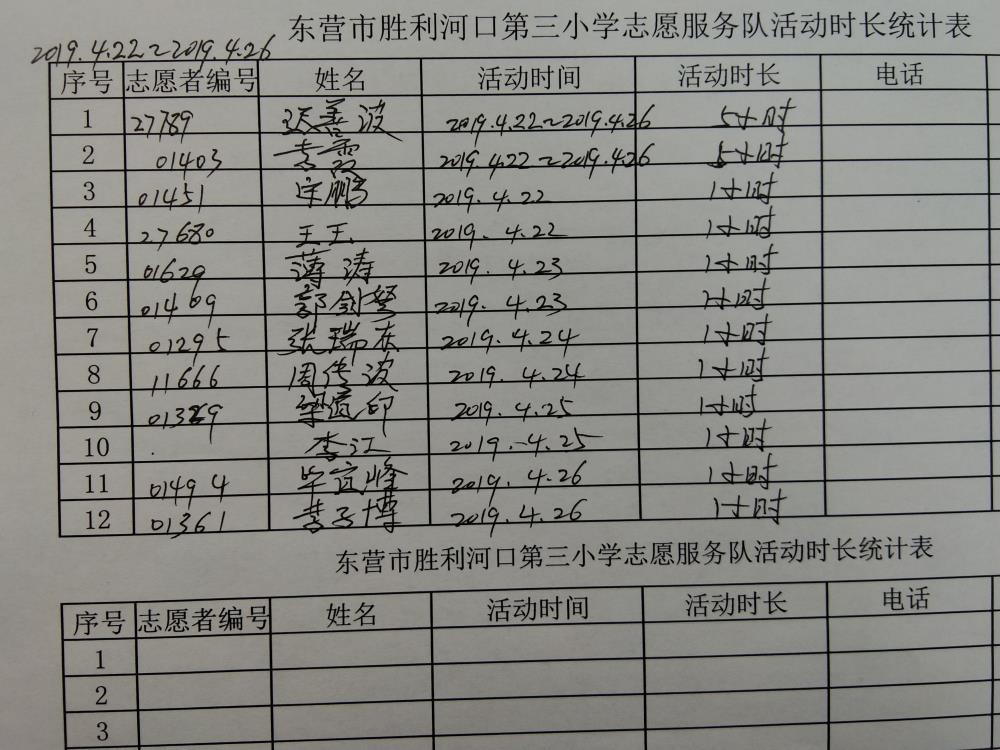 东营市胜利河口第三小学志愿服务队活动时长统计表
2019.4.22~2019.4.26
序号 志愿者编号 姓名 活动时间 活动时长 电话
1 27789 张善波 2019.4.22~2019.4.26 5小时
2 01403 袁霞 2019.4.22~2019.4.26 5小时
3 01451 宋鹏 2019.4.22 1小时
4 27680 王玉 2019.4.22 1小时
5 01629 薄涛 2019.4.23 1小时
6 01469 郭剑 2019.4.23 1小时
7 01295 张瑞庆 2019.4.24 1小时
8 11666 周传波 2019.4.24 1小时
9 2019.4.25 1小时
10 李江 2019.4.25 1小时
11 01494 毕宜峰 2019.4.26 1小时
12 01361 李子博 2019.4.26 1小时
东营市胜利河口第三小学志愿服务队活动时长统计表
序号 志愿者编号 姓名 活动时间 活动时长 电话
1
2
3